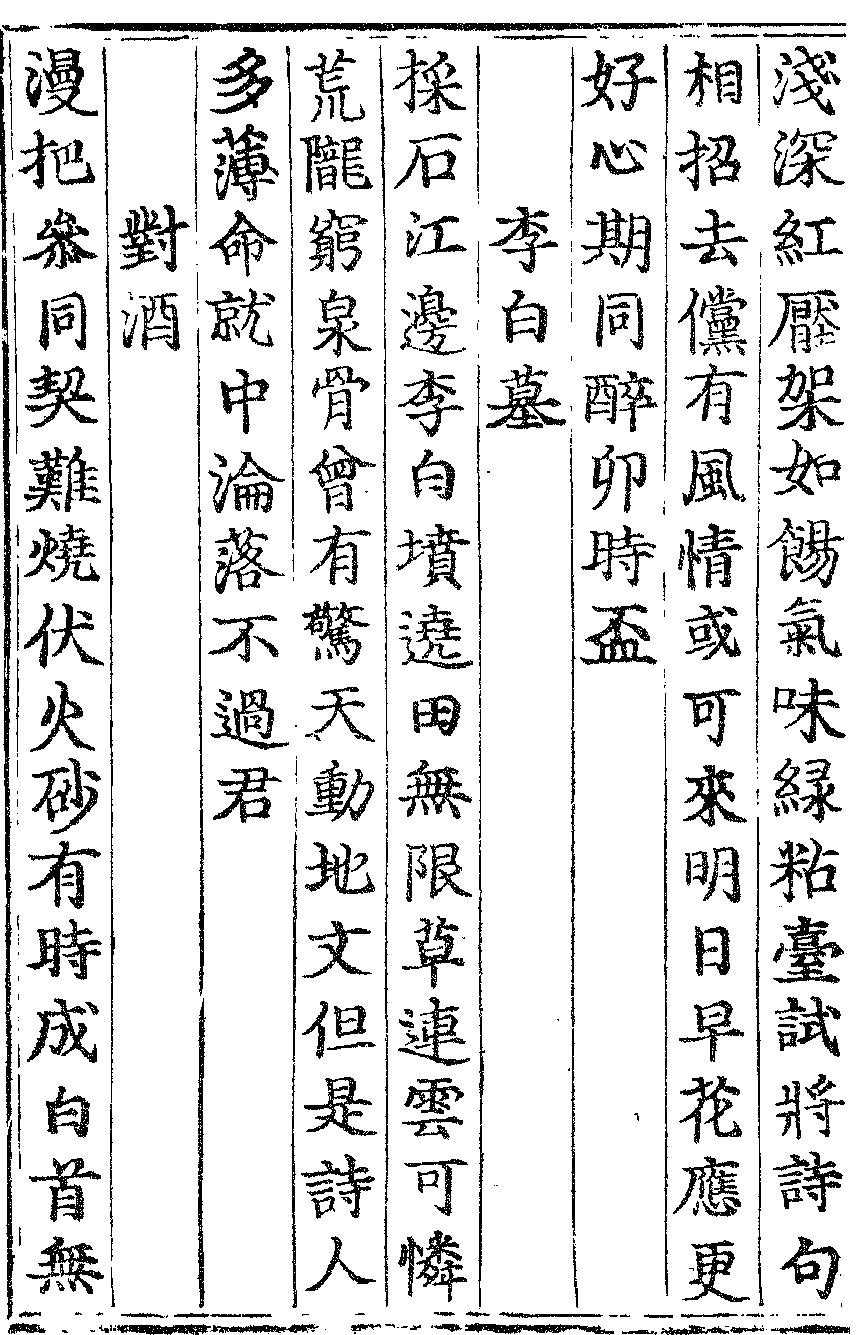 淺深紅壓架如餳氣味緑粘臺試將詩句
相招去儻有風情或可來明日早花應更
好心期同醉卯時盃
李白墓
採石江邊李白墳遶田無限草連雲可憐
荒隴窮泉骨曾有驚天動地文但是詩人
多薄命就中淪落不過君
對酒
漫把叅同契難燒伏火砂有時成白首無